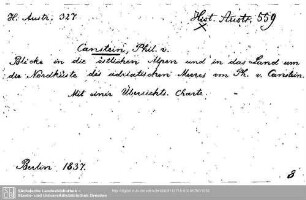 H. Austr. 327
Hist. Austr. 559
Canstein, Phil. v.
Blicke in die östlichen Alpen und in das Land um
die Nordküste des adriatischen Meeres von Ph. v. Canstein.
Mit einer Übersichts-Charte.
Berlin. 1837.
8
Sächsische Landesbibliothek -
Staats- und Universitätsbibliothek Dresden